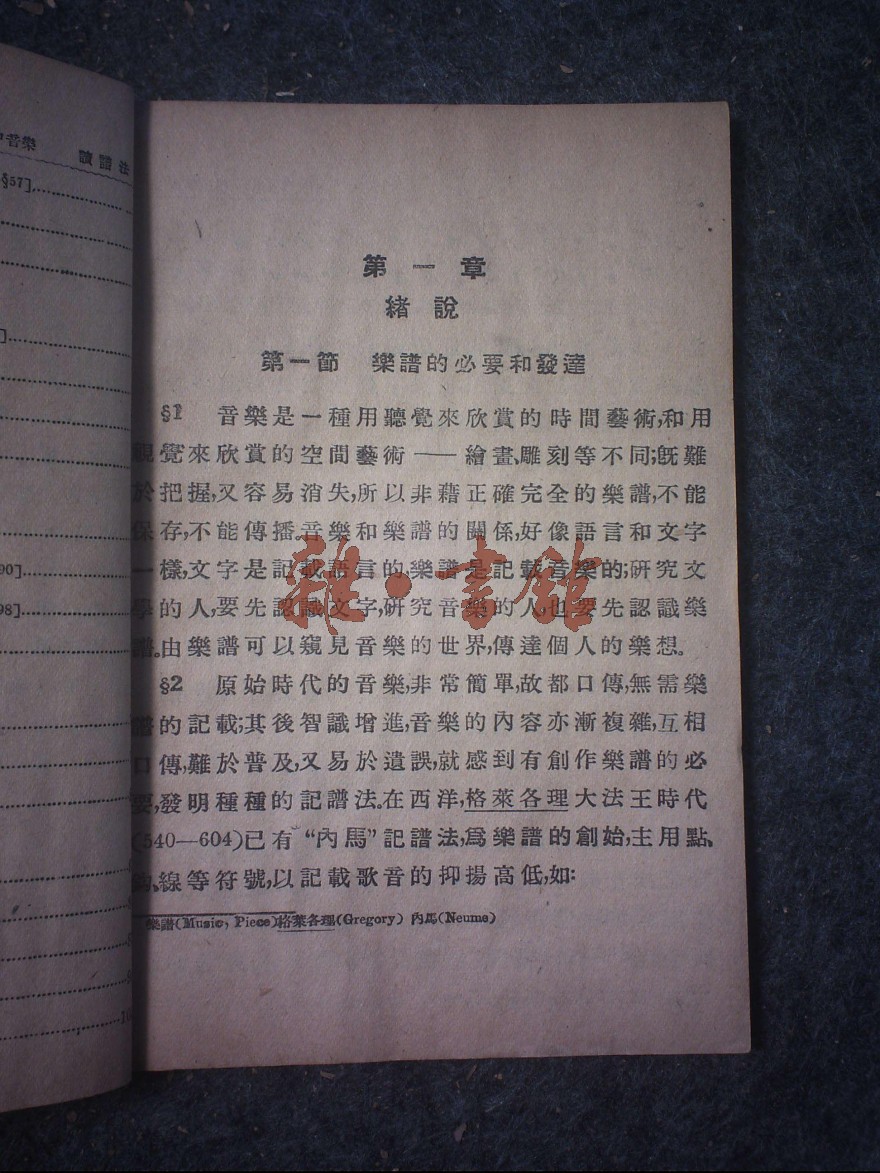 中音樂 讀譜法
§57]
]
90]
98]
第一章
緒說
第一節 樂譜的必要和發達
§1 音樂是一種用聽覺來欣賞的時間藝術,和用
視覺來欣賞的空間藝術——繪畫、雕刻等不同;旣難
於把握,又容易消失,所以非藉正確完全的樂譜,不能
保存,不能傳播音樂和樂譜的關係,好像語言和文字
一樣,文字是記載語言的,樂譜是記載音樂的;硏究文
學的人,要先認識文字,硏究音樂的人,也要先認識樂
譜。由樂譜可以窺見音樂的世界,傳達個人的樂想。
§2 原始時代的音樂,非常簡單,故都口傳,無需樂
譜的記載;其後智識增進,音樂的內容亦漸複雜,互相
口傳,難於普及,又易於遺誤,就感到有創作樂譜的必
要,發明種種的記譜法。在西洋,格萊各理大法王時代
(540—604)已有“內馬”記譜法,爲樂譜的創始,主用點、
鈎、線等符號,以記載歌音的抑揚高低,如:
樂譜(Music, Piece)格萊各理(Gregory) 內馬(Neume)
雜·書館